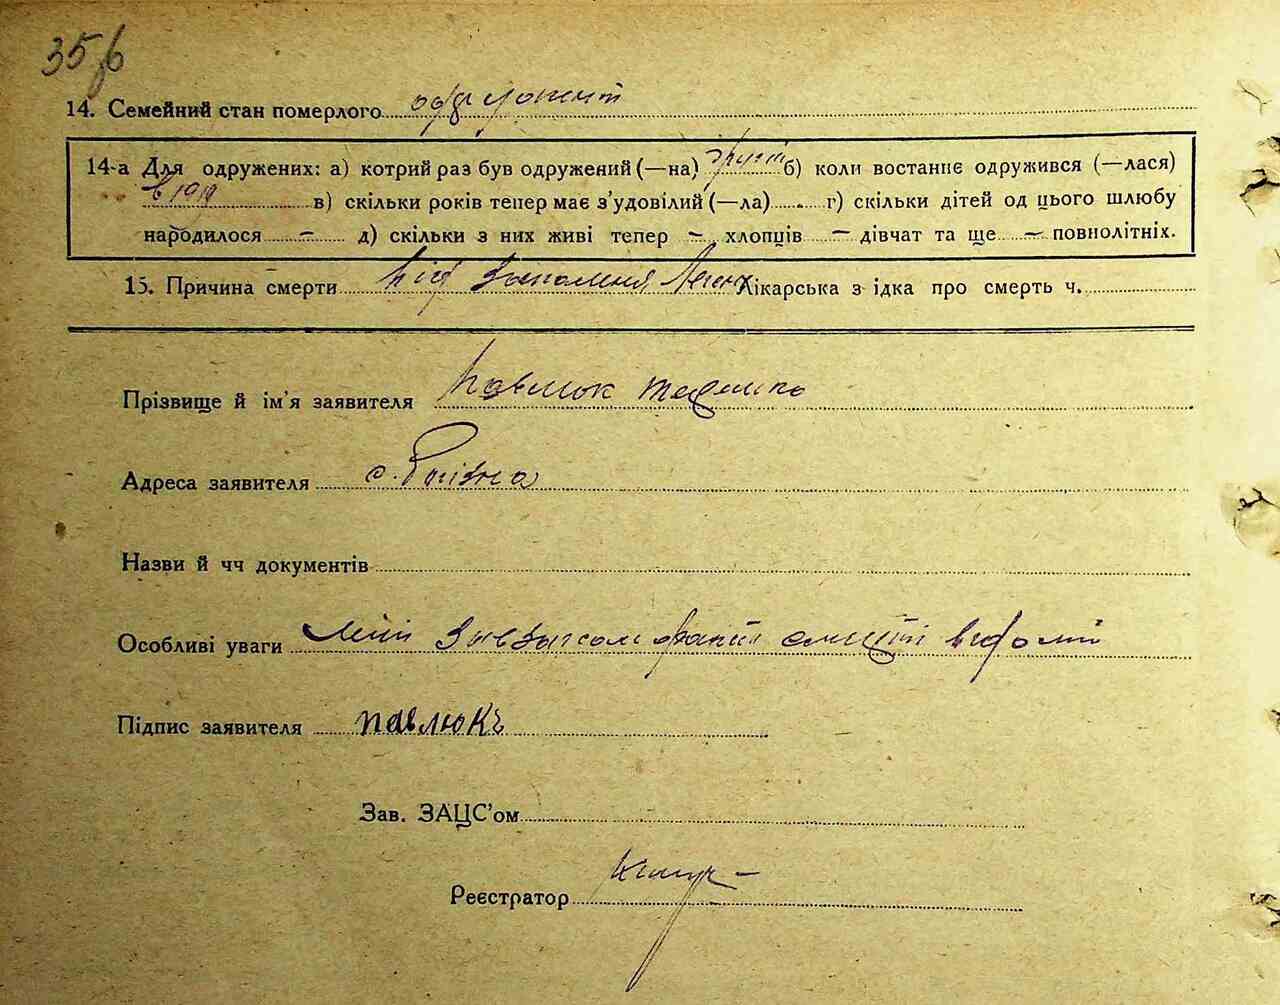 35
14. Семейний стан померлого
14-а Для одружених: а) котрий раз був одружений (—на) другий б) коли востаннє одружився (—лася)
в 1919 в) скільки років тепер має з'удовілий (—ла) г) скільки дітей од цього шлюбу
народилося — д) скільки з них живі тепер — хлопців — дівчат та ще — повнолітніх.
15. Причина смерти від запалення Леген Лікарська з ідка про смерть ч.
Прізвище й ім'я заявителя Павлюк
Адреса заявителя с.
Назви й чч документів
Особливі уваги Мені Завзагсом факт смерті відомий
Підпис заявителя Павлюкъ
Зав. ЗАЦС'ом
Реєстратор